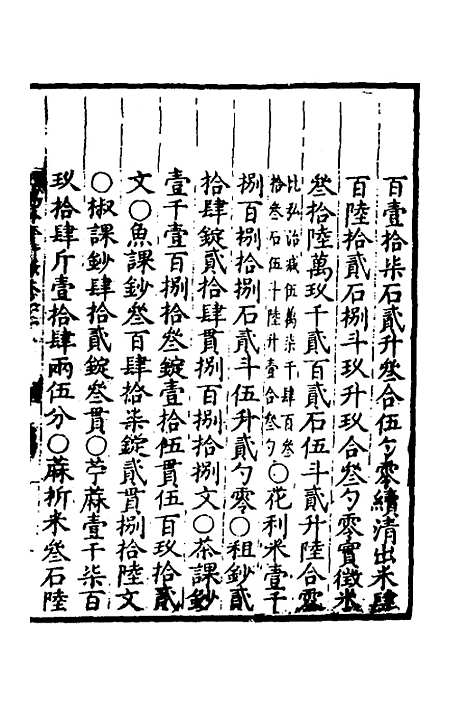 百壹拾柒石貳升叁合伍勺零續清出米肆
百陸拾貳石捌斗玖升玖合叁勺零實徵米
叁拾陸萬玖千貳百貳石伍斗貳升陸合零
比弘治減伍萬柒千肆百叁
拾叁石伍斗陸升壹合叁勺○花利米壹千
捌百捌拾捌石貳斗伍升貳勺零○租鈔貳
拾肆錠貳拾肆貫捌百捌拾捌文○茶課鈔
壹千壹百捌拾叁錠壹拾伍貫伍百玖拾貳
文○魚課鈔叁百肆拾柒錠貳貫捌拾陸文
○椒課鈔肆拾貳錠叁貫○苧蔴壹千柒百
玖拾肆斤壹拾肆兩伍分○蔴折米叁石陸